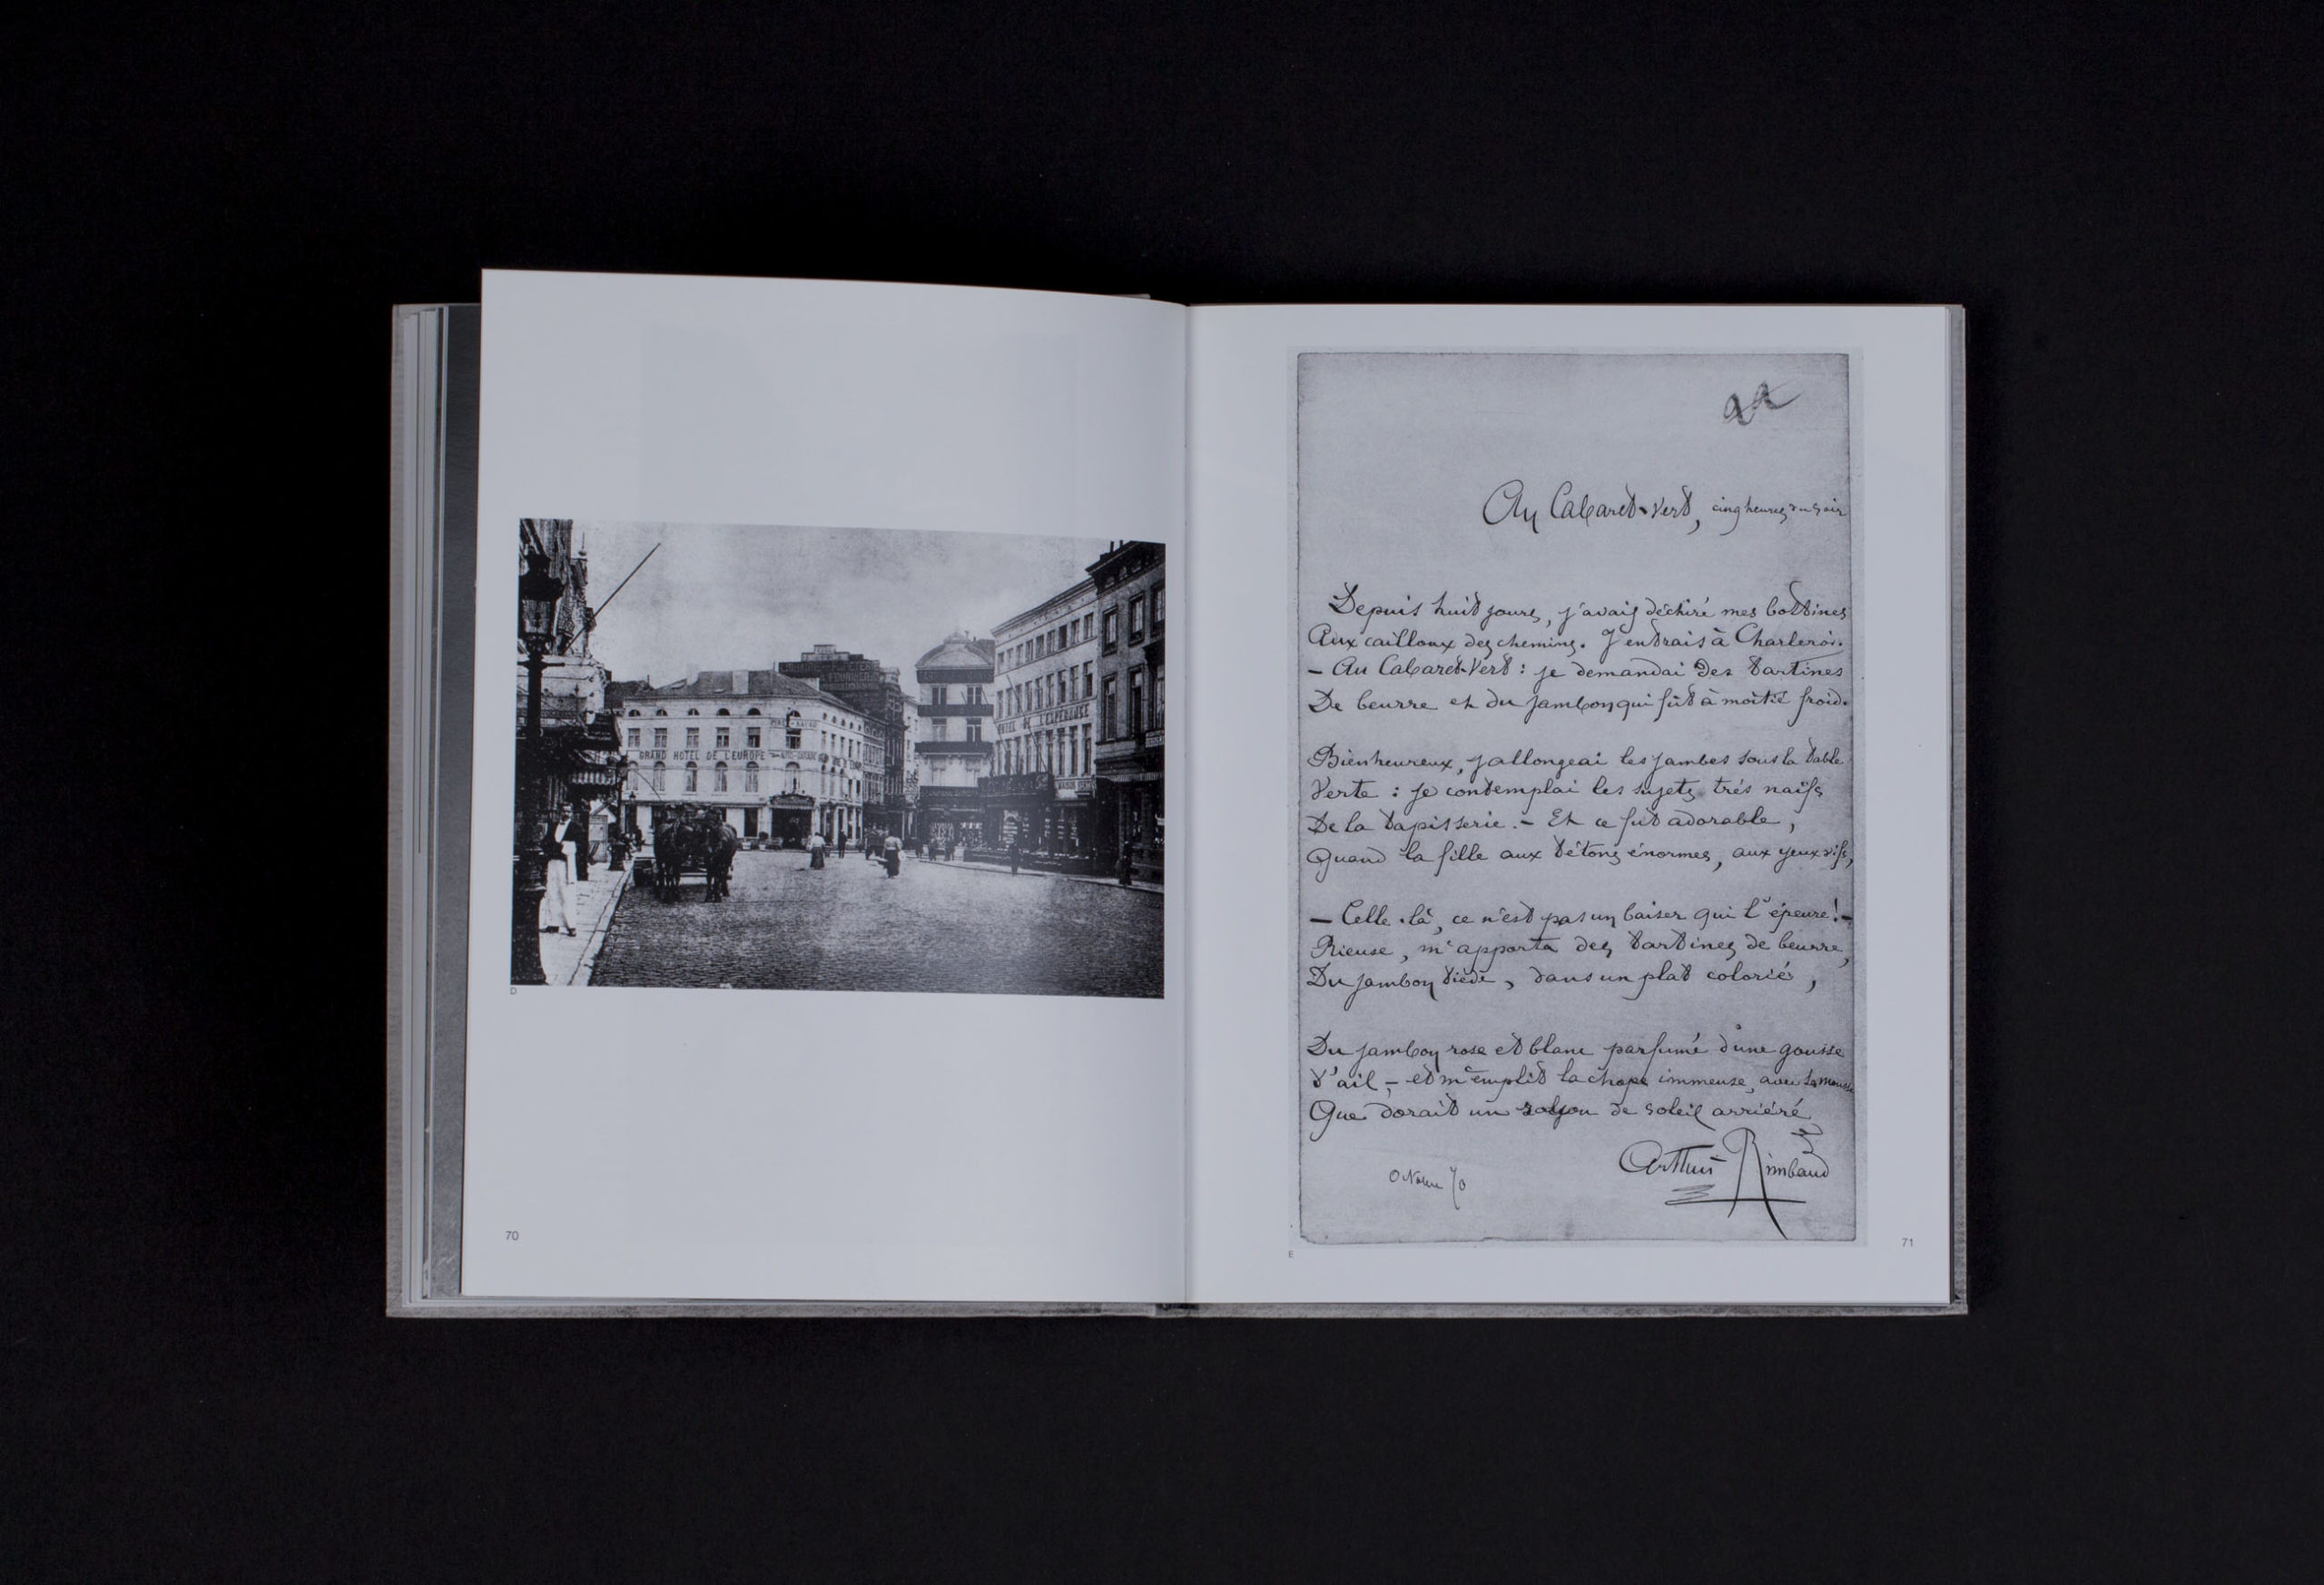 GRAND HOTEL DE L'EUROPE
HOTEL DE L'ESPERANCE
D
70
Au Cabaret-Vert, cinq heures du soir
Depuis huit jours, j'avais déchiré mes bottines
Aux cailloux des chemins. J'entrais à Charleroi.
– Au Cabaret-Vert : je demandai des tartines
De beurre et du jambon qui fût à moitié froid.
Bienheureux, j'allongeai les jambes sous la table
Verte : je contemplai les sujets très naïfs
De la tapisserie. – Et ce fut adorable,
Quand la fille aux tétons énormes, aux yeux vifs,
– Celle-là, ce n'est pas un baiser qui l'épeure ! –
Rieuse, m'apporta des tartines de beurre,
Du jambon tiède, dans un plat colorié,
Du jambon rose et blanc parfumé d'une gousse
D'ail, – et m'emplit la chope immense, avec sa mousse
Que dorait un rayon de soleil arriéré
Arthur Rimbaud
Octobre 70
E
71